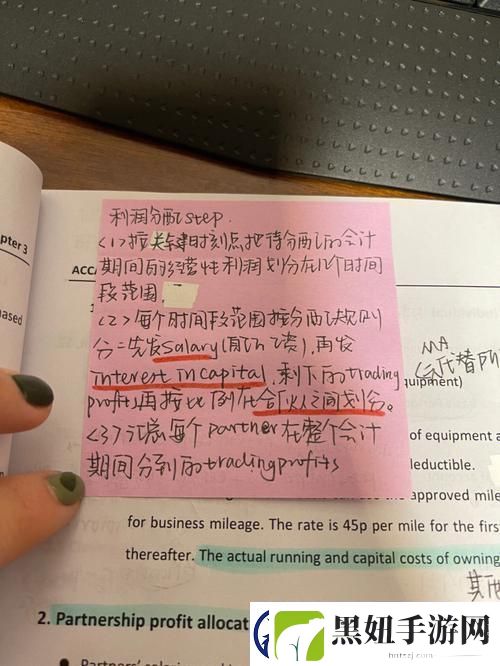 利润分配step.
<1>按关键时刻点,把待分配的会计
期间的经营性利润划分在几个时间
段范围
<2>每个时间段范围按分配规则
分:先发salary(前几个凑),再发
interest in capital,剩下的trading
profits再按比例在合伙人之间划分。
<3>汇总每个partner在整个会计
期间分到的trading profits
pter 3
ACCA
based
MA
会代替
quipment)
of equipment a
deductible.
approved mile
for business mileage. The rate is 45p per mile for the first
thereafter. The actual running and capital costs of owning
2. Partnership profit allocat
黑妞手游网
hnzzsj.com